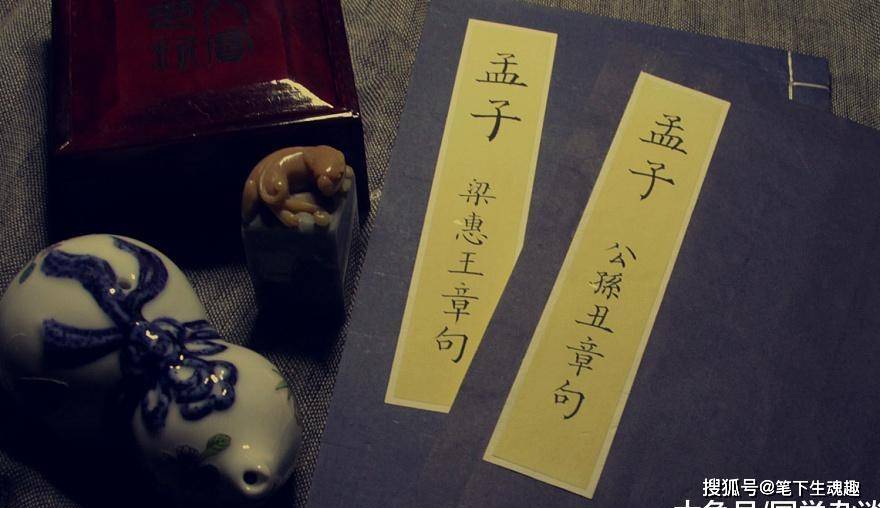 孟子
梁惠王章句
孟子
公孫丑章句
搜狐号@笔下生魂趣